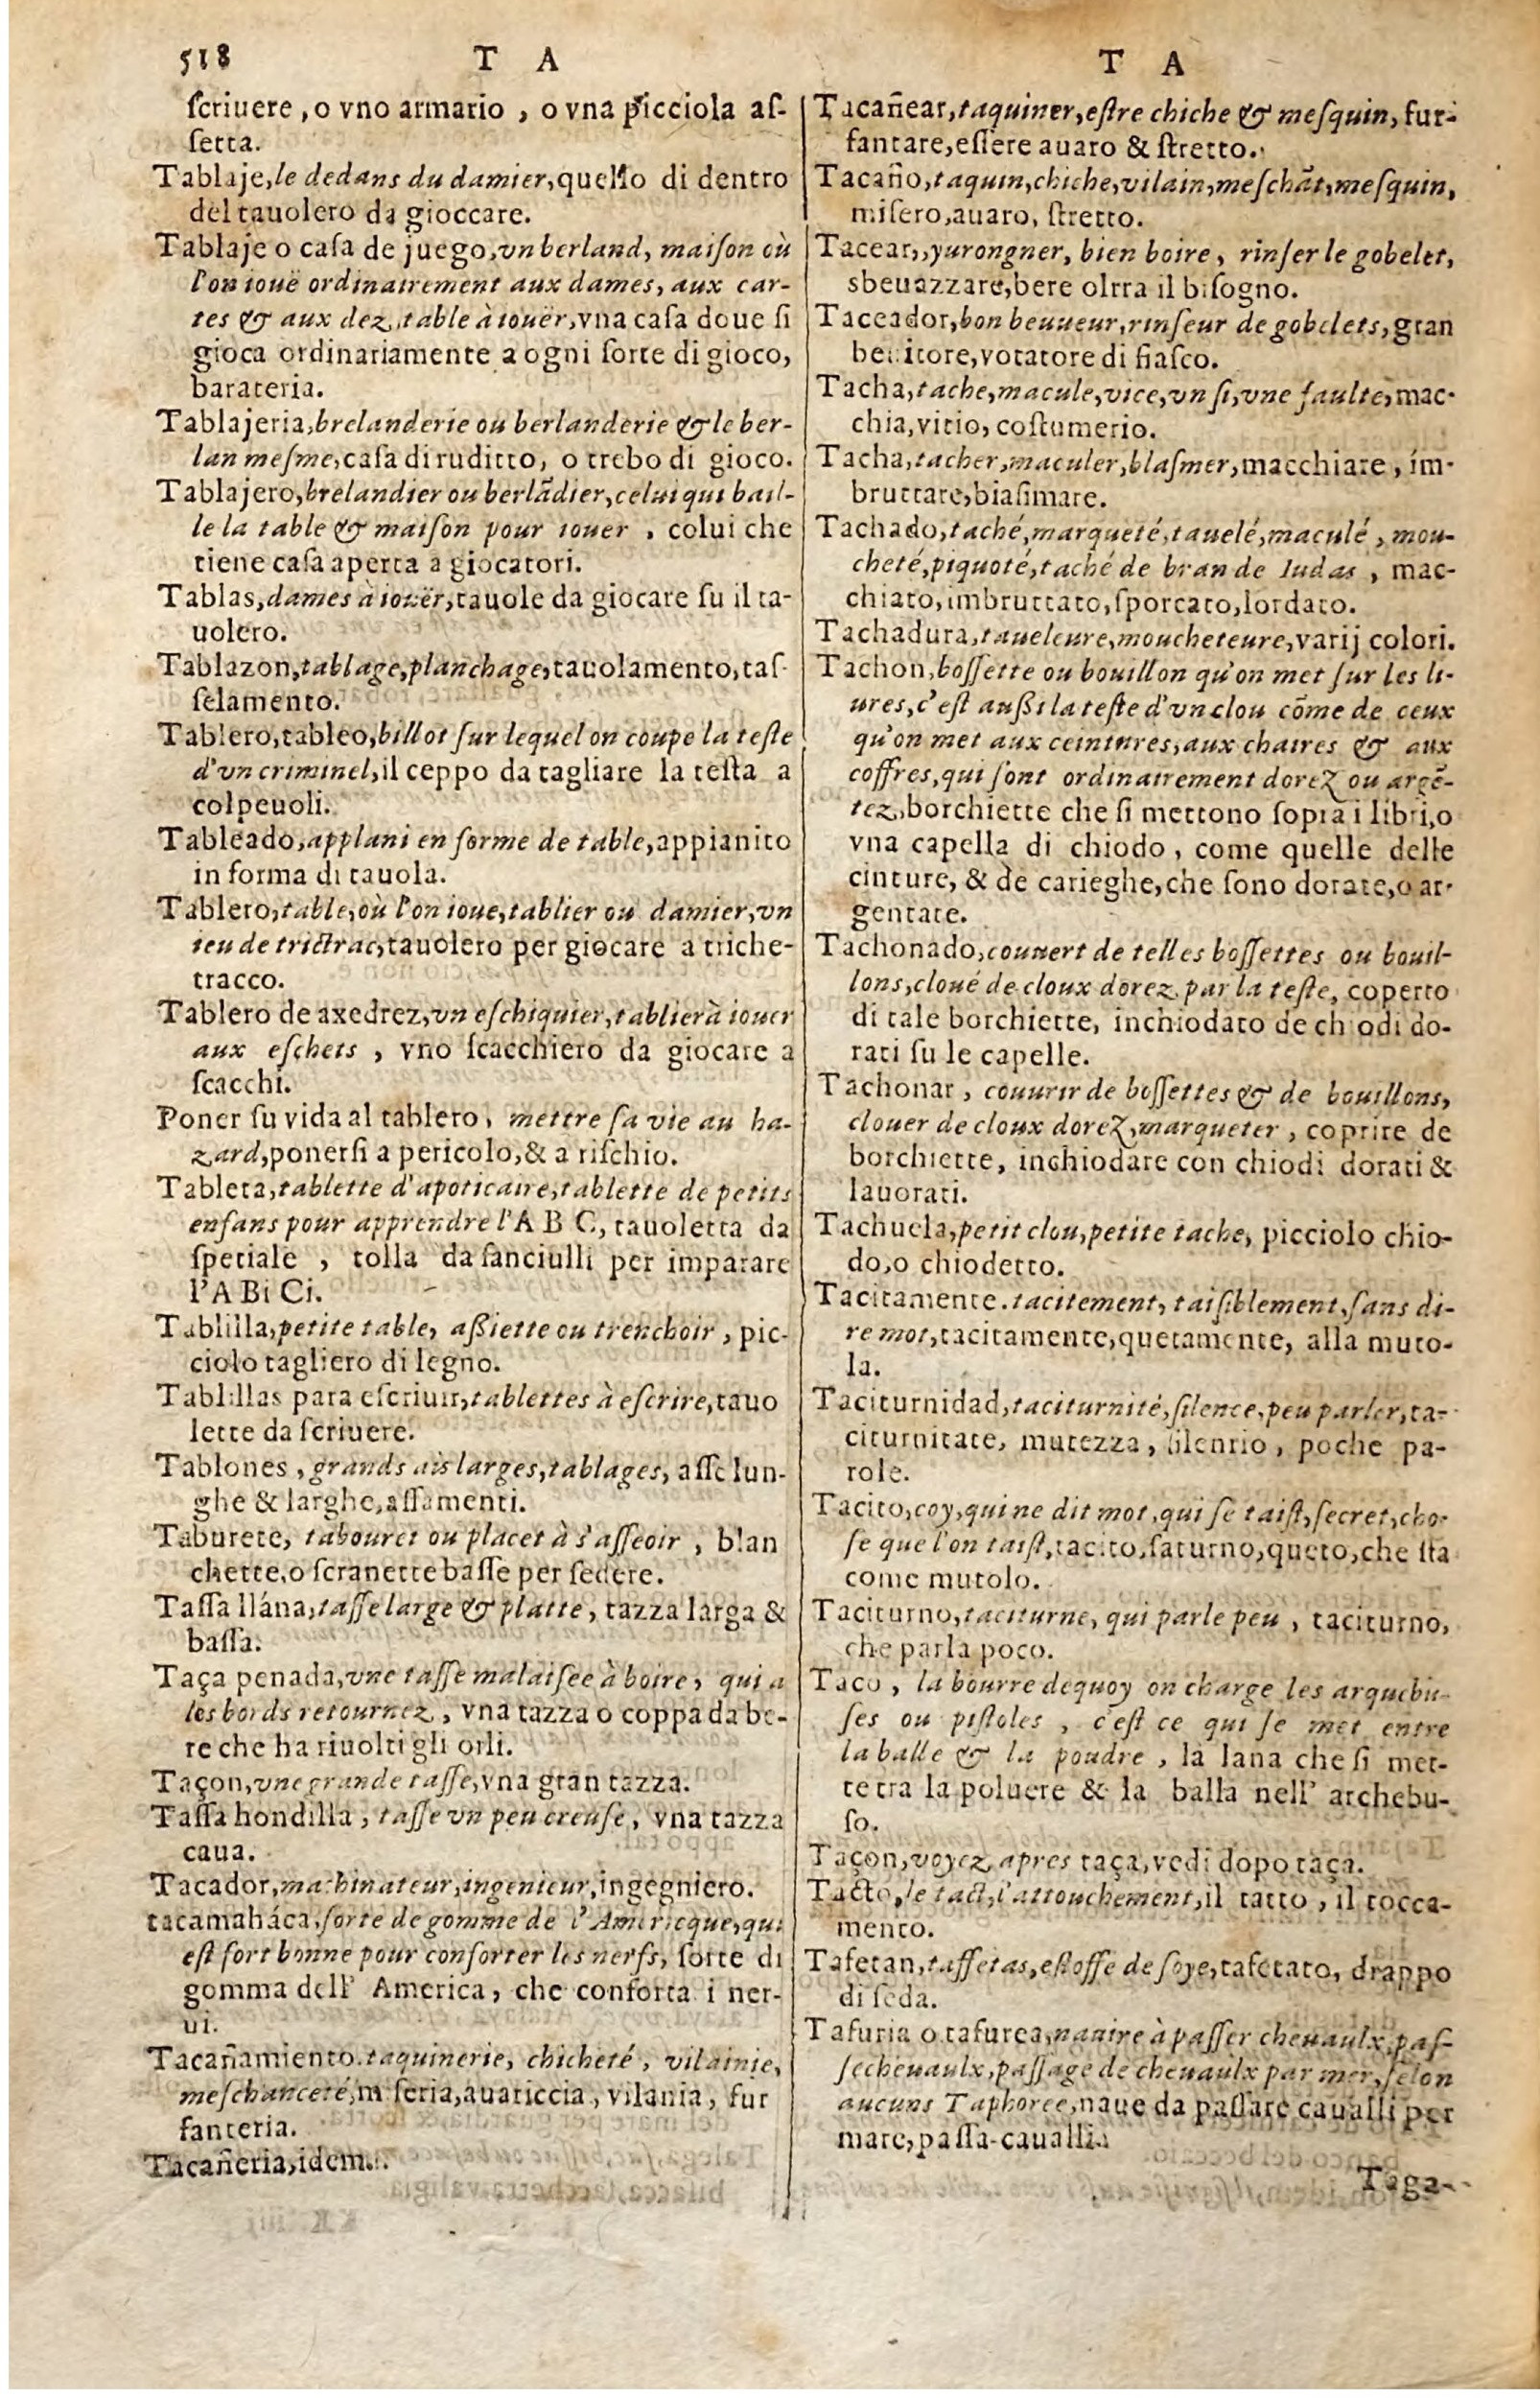 518 T A
ſcriuere, o vno armario, o vna picciola aſ-
ſetta.
Tablaje, le dedans du damier, quello di dentro
del tauolero da gioccare.
Tablaje o caſa de juego, vn berland, maiſon où
l'on iouë ordinairement aux dames, aux car-
tes & aux dez, table à iouër, vna caſa doue ſi
gioca ordinariamente a ogni ſorte di gioco,
barateria.
Tablajeria, brelanderie ou berlanderie & le ber-
lan meſme, caſa di ruditto, o trebo di gioco.
Tablajero, brelandier ou berlãdier, celui qui bail-
le la table & maiſon pour iouer, colui che
tiene caſa aperta a giocatori.
Tablas, dames à iouër, tauole da giocare ſu il ta-
uolero.
Tablazon, tablage, planchage, tauolamento, taſ-
ſelamento.
Tablero, tableo, billot ſur lequel on coupe la teſte
d'vn criminel, il ceppo da tagliare la teſta a
colpeuoli.
Tableado, applani en forme de table, appianito
in forma di tauola.
Tablero, table, où l'on ioue, tablier ou damier, vn
ieu de trictrac, tauolero per giocare a triche-
tracco.
Tablero de axedrez, vn eſchiquier, tablier à iouer
aux eſchets, vno ſcacchiero da giocare a
ſcacchi.
Poner ſu vida al tablero, mettre ſa vie au ha-
zard, ponerſi a pericolo, & a riſchio.
Tableta, tablette d'apoticaire, tablette de petits
enfans pour apprendre l'A B C, tauoletta da
ſpetiale, tolla da fanciulli per imparare
l'A Bi Ci.
Tablilla, petite table, aßiette ou trenchoir, pic-
ciolo tagliero di legno.
Tablillas para eſcriuir, tablettes à eſcrire, tauo
lette da ſcriuere.
Tablones, grands ais larges, tablages, aſſe lun-
ghe & larghe, aſſamenti.
Taburete, tabouret ou placet à s'aſſeoir, blan
chette, o ſcranette baſſe per ſedere.
Taſſa llána, taſſe large & platte, tazza larga &
baſſa.
Taça penada, vne taſſe malaiſee à boire, qui a
les bords retournez, vna tazza o coppa da be-
re che ha riuolti gli orli.
Taçon, vne grande taſſe, vna gran tazza.
Taſſa hondilla, taſſe vn peu creuſe, vna tazza
caua.
Tacador, machinateur, ingenieur, ingegniero.
tacamaháca, ſorte de gomme de l'Americque, qui
eſt fort bonne pour conforter les nerfs, ſorte di
gomma dell' America, che conforta i ner-
ui.
Tacañamiento, taquinerie, chicheté, vilainie,
meſchanceté, miſeria, auariccia, vilania, fur
fanteria.
Tacañeria, idem.
T A
Tacañear, taquiner, eſtre chiche & meſquin, fur-
fantare, eſſere auaro & ſtretto.
Tacaño, taquin, chiche, vilain, meſchãt, meſquin,
miſero, auaro, ſtretto.
Tacear, yurongner, bien boire, rinſer le gobelet,
sbeuazzare, bere oltra il biſogno.
Taceador, bon beuueur, rinſeur de gobelets, gran
beuitore, votatore di fiaſco.
Tacha, tache, macule, vice, vn ſi, vne faulte, mac-
chia, vitio, coſtumerio.
Tacha, tacher, maculer, blaſmer, macchiare, im-
bruttare, biaſimare.
Tachado, taché, marqueté, tauelé, maculé, mou-
cheté, piquoté, taché de bran de Iudas, mac-
chiato, imbruttato, ſporcato, lordato.
Tachadura, taueleure, moucheteure, varij colori.
Tachon, boſſette ou bouillon qu'on met ſur les li-
ures, c'eſt außi la teſte d'vn clou cõme de ceux
qu'on met aux ceintures, aux chaires & aux
coffres, qui ſont ordinairement dorez ou argẽ-
tez, borchiette che ſi mettono ſopra i libri, o
vna capella di chiodo, come quelle delle
cinture, & de carieghe, che ſono dorate, o ar-
gentate.
Tachonado, couuert de telles boſſettes ou bouil-
lons, cloué de cloux dorez par la teſte, coperto
di tale borchiette, inchiodato de chiodi do-
rati ſu le capelle.
Tachonar, couurir de boſſettes & de bouillons,
clouer de cloux dorez, marqueter, coprire de
borchiette, inchiodare con chiodi dorati &
lauorati.
Tachuela, petit clou, petite tache, picciolo chio-
do, o chiodetto.
Tacitamente. tacitement, taiſiblement, ſans di-
re mot, tacitamente, quetamente, alla muto-
la.
Taciturnidad, taciturnité, ſilence, peu parler, ta-
citurnitate, mutezza, ſilentio, poche pa-
role.
Tacito, coy, qui ne dit mot, qui ſe taiſt, ſecret, cho-
ſe que l'on taiſt, tacito, ſaturno, queto, che ſta
come mutolo.
Taciturno, taciturne, qui parle peu, taciturno,
che parla poco.
Taco, la bourre dequoy on charge les arquebu-
ſes ou piſtoles, c'eſt ce qui ſe met entre
la balle & la poudre, la lana che ſi met-
te tra la poluere & la balla nell' archebu-
ſo.
Taçon, voyez apres taça, vedi dopo taça.
Tacto, le tact, l'attouchement, il tatto, il tocca-
mento.
Tafetan, taffetas, eſtoffe de ſoye, tafetato, drappo
di ſeda.
Tafuria o tafurea, nauire à paſſer cheuaulx, paſ-
ſecheuaulx, paſſage de cheuaulx par mer, ſelon
aucuns Taphoree, naue da paſſare caualli per
mare, paſſa-caualli.
Taga-